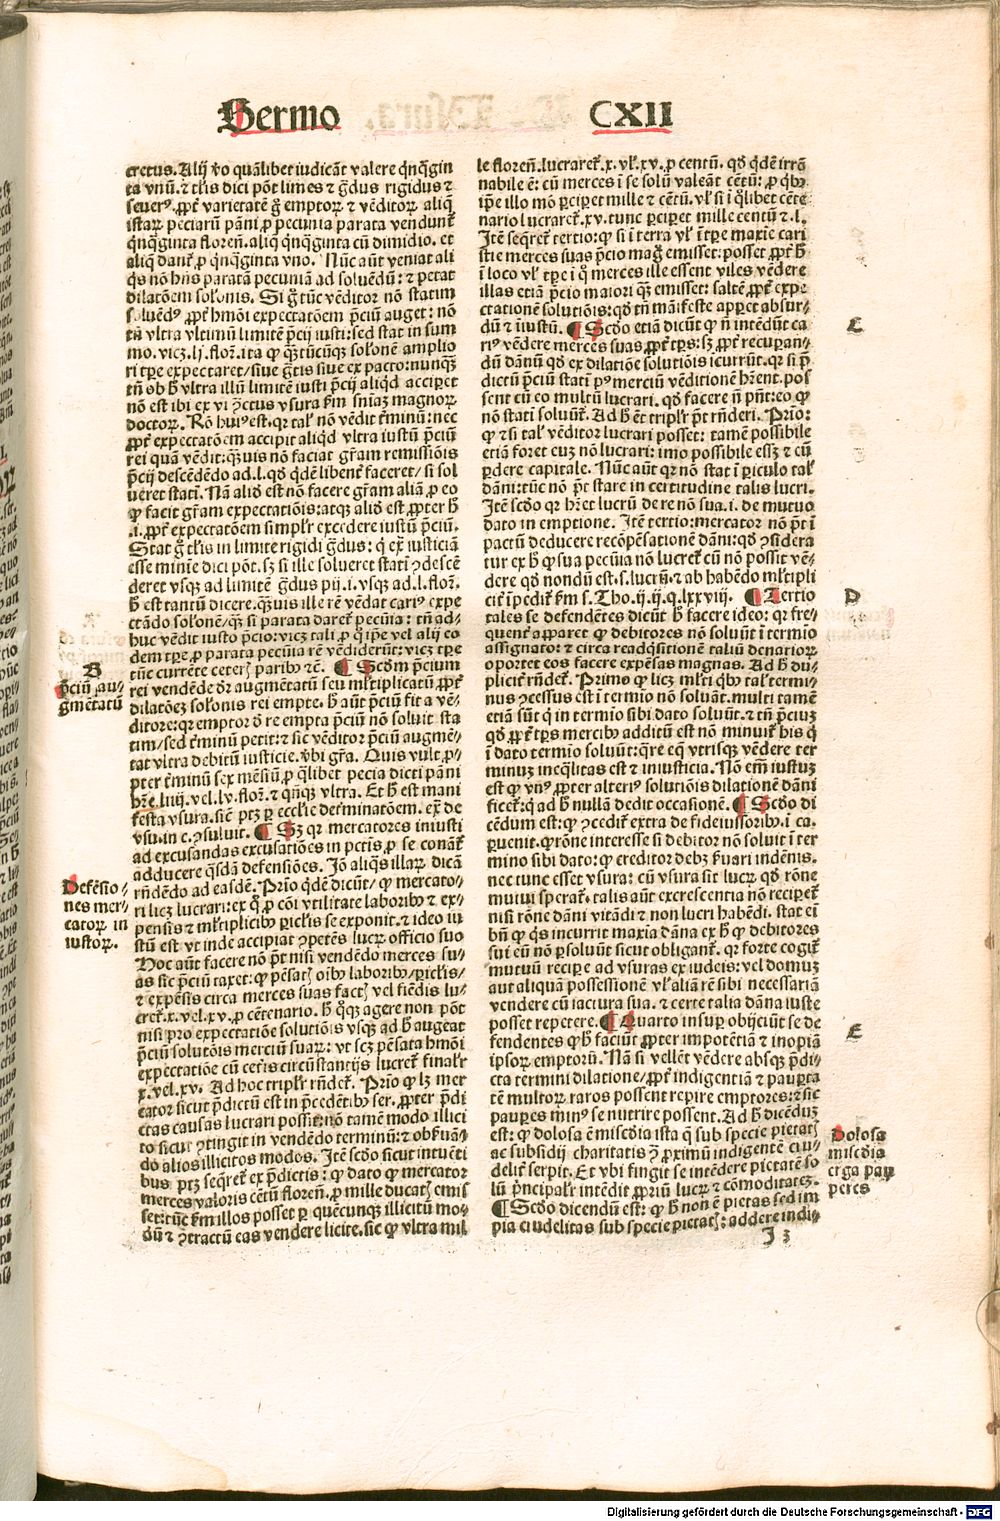 Sermo CXII
cretus. Alij ṽo quãlibet iudicãt valere q̃nq̃gin
ta vnũ. ⁊ t̃lis dici põt limes ⁊ g̃dus rigidus ⁊
seuerꝰ. ꝓpt̃ varietatẽ g̃ emptoꝝ ⁊ vẽditoꝝ aliq̃
istaꝝ peciarũ pãni ꝓ pecunia parata vendunt̃
q̃nq̃ginta floreñ. aliq̃ q̃nq̃ginta cũ dimidio. et
aliq̃ dant̃ ꝓ q̃nq̃ginta vno. Nũc aũt veniat ali
q̃s nõ hñs paratam pecuniã ad soluẽdũ: ⁊ petat
dilatõem sol̃onis. Si g̃ tũc vẽditor nõ statim
soluẽdꝰ ꝓpt̃ hmõi expectatõem p̃cij auget: nõ
tñ vltra vltimũ limitẽ p̃cij iusti: sed stat in sum
mo. vicꝫ. lj. floꝝ. ita ꝙ q̃ꝫtũcũqꝫ sol̃onẽ amplio
ri tꝑe expectaret/siue g̃tis siue ex pacto: nunqꝫ̃
tñ ob h̃ vltra illũ limitẽ iusti p̃cij aliqd̃ acciperet
nõ est ibi ex vi ꝯctus vsura fm̃ sniaꝫ magnoꝝ
doctoꝝ. Rõ huiꝰ est. qꝛ tal̃ nõ vẽdit t̃minũ: nec
ꝓpt̃ expectatõem accipit aliqd̃ vltra iustũ p̃ciũ
rei quã vẽdit: qꝫ̃uis nõ faciat gr̃am remissiõis
p̃cij descẽdẽdo ad. l. qd̃ q̃dẽ libent̃ faceret/ si sol
ueret stati. Nã aliđ est nõ facere gr̃am aliã ꝓ eo
ꝙ facit gr̃am expectatiõis: atqꝫ aliđ est ꝓpter h̃
.i. ꝓpt̃ expectatõem simpl̃r excedere iustũ p̃ciũ.
Stat g̃ t̃lis in limite rigidi g̃dus: q̃ ex̃ iusticiã
esse minie dici põt. sꝫ si ille solueret stati ꝯdescẽ
deret vsqꝫ ad limitẽ g̃dus pij. i. vsqꝫ ad. l. floꝝ.
h̃ est tantũ dicere. qꝫ̃uis ille rẽ vẽdat cariꝰ expe
ctãdo sol̃onẽ/qꝫ̃ si parata daret̃ pecũia: tñ ad-
huc vẽdit iusto p̃cio: vicꝫ tali ꝓ q̃ ip̃e vel alij eo
dem tꝑe ꝓ parata pecũia rẽ vẽdiderũt: vicꝫ tꝑe
tũc currẽte ceteris̃ paribꝰ ⁊c̃. ¶ Scđm p̃cium
rei vendẽde dr̃ augmẽtatũ seu ml̃tiplicatũ ꝓpt̃
dilatõeꝫ sol̃onis rei empte. h̃ aũt p̃ciũ fit a vẽ-
ditore: qꝛ emptor đ re empta p̃ciũ nõ soluit sta
tim/sed t̃minũ petit: ⁊ sic vẽditor p̃ciũ augmẽ-
tat vltra debitũ iusticie. ṽbi gr̃a. Quis vult ꝓ-
pter t̃minũ sex mẽsiũ ꝓ q̃libet pecia dicti pãni
hr̃e. liiij. vel. lv. floꝝ. ⁊ qñqꝫ vltra. Et h̃ est mani
festa vsura. sic̃ ptꝫ ꝑ eccl̃ie det̃minatõem. ex̃. de
vsu. in c. ꝯsuluit. ¶ Sꝫ qꝛ mercatores iniusti
ad excusandas excusatiões in pctis̃ ꝓ se conãt̃
adducere qs̃dã defensiões. Jõ aliq̃s illaꝝ dicã
rñdẽdo ad easdẽ. Prĩo q̃dẽ dicũt/ ꝙ mercato-
ri licꝫ lucrari: ex q̃ ꝓ cõi vtilitate laboribꝰ ⁊ ex-
pensis ⁊ ml̃tiplicibꝰ pic̃lis se exponit. ⁊ ideo iu
stũ est vt inde accipiat ꝯpetẽs lucꝝ officio suo
Hoc aũt facere nõ p̃t nisi vendẽdo merces su-
as sic̃ p̃ciũ taxet: ꝙ pẽsatis̃ oĩbꝰ laboribꝰ/pic̃lis/
⁊ expẽsis circa merces suas factis̃ vel fiẽdis lu-
cret̃. x. vel. xv. ꝓ cẽtenario. h̃ q̃qꝫ agere non põt
nisi pro expectatiõe solutiõis vsqꝫ ad h̃ augeat
p̃ciũ solutõis merciũ suaꝝ: vt scꝫ pẽsata hmõi
expectatiõe cũ cet̃is circũstantijs lucret̃ final̃r
x. vel. xv. Ad hoc tripl̃r rñdet̃. Prĩo ꝙ lꝫ mer
cator sicut p̃dictũ est in p̃cedẽtibꝰ ser. ꝓpter p̃di
ctas causas lucrari possit: nõ tamẽ modo illici
to sicut ꝯtingit in vendẽdo terminũ: ⁊ obf̃uã-
do alios illicitos modos. Jtẽ scđo sicut intuẽti
bus ptꝫ seq̃ret̃ ex p̃dictis: ꝙ dato ꝙ mercator
merces valoris cẽtũ floreñ. ꝓ mille ducatis̃ emis
set: tũc fm̃ illos posset ꝑ quẽcunqꝫ illicitũ mo-
dũ ⁊ ꝯtractũ eas vendere licite. sic̃ ꝙ vltra mil
B
p̃ciũ au-
gmẽtatũ
Defẽsio-
nes mer-
catoꝝ in
iustoꝝ.
le floreñ. lucraret̃. x. vl̃. xv. ꝓ centũ. qđ q̃dẽ irrõ
nabile ẽ: cũ merces i se solũ valeãt cẽtũ: ꝓ qb̃ꝰ
ip̃e illo mõ ꝑciꝑet mille ⁊ cẽtũ. vl̃ si i q̃libet cẽte
nario lucraret̃. xv. tunc ꝑciꝑet mille centũ ⁊ l.
Jtẽ seq̃ret̃ tertio: ꝙ si i terra vl̃ i tꝑe maxie cari
stie merces suas p̃cio mag̃ emisset: posset ꝓpt̃ h̃
i loco vl̃ tꝑe i q̃ merces ille essent viles vẽdere
illas etiã p̃cio maiori qꝫ̃ emisset: saltẽ ꝓpt̃ expe
ctationẽ solutiõis: qđ tñ mãifeste apparet absur-
dũ ⁊ iniustũ. ¶ Scđo etiã dicũt ꝙ ñ intẽdũt ca
riꝰ vẽdere merces suas ꝓpt̃ tp̃s: sꝫ ꝓpt̃ recuꝑan-
dũ dãnũ qđ ex dilatiõe solutiõis icurrũt. qꝛ si p̃
dictũ p̃ciũ stati pꝰ merciũ vẽditionẽ hr̃ent. pos
sent cũ eo multũ lucrari. qđ facere ñ pñt: eo ꝙ
nõ stati soluũt̃. Ad h̃ ẽt tripl̃r p̃t rñderi. Prĩo:
ꝙ ⁊ si tal̃ vẽditor lucrari posset: tamẽ possibile
etiã foret euꝫ nõ lucrari: imo possibile essꝫ ⁊ cũ
ꝑdere capitale. Nũc aũt qꝛ nõ stat i ꝑiculo tal̃
dãni: tũc nõ p̃t stare in certitudine talis lucri.
Jtẽ scđo qꝛ hr̃et lucrũ de re nõ sua. i. de mutuo
dato in emptione. Jtẽ tertio: mercator nõ p̃t i
pactũ deducere recõpẽsationẽ dãni: qđ ꝯsidera
tur ex h̃ ꝙ sua pecũia nõ lucret̃ cũ nõ possit vẽ-
dere qđ nondũ est. s. lucrũ. ⁊ ab habẽdo ml̃tipli
cit̃ ipedit̃ fm̃ s. Tho. ij. ij. q. lxxviij. ¶ Tertio
tales se defendẽtes dicũt h̃ facere ideo: qꝛ fre-
quent̃ apparet ꝙ debitores nõ soluũt i termio
assignator: ⁊ circa readq̃sitionẽ taliũ denarioꝝ
oportet eos facere expẽsas magnas. Ad h̃ du-
plicit̃ rñdet̃. Primo ꝙ licꝫ ml̃ti qb̃ꝰ tal̃ termi-
nus ꝯcessus est i termio nõ soluãt. multi tamẽ
etiã sũt q̃ in termio sibi dato soluũt. ⁊ tñ p̃ciuꝫ
qđ ꝓpt̃ tp̃s mercibꝰ additũ est nõ minuit̃ his q̃
i dato termio soluũt: q̃re eq̃ vtrisqꝫ vẽdere ter
minuꝫ ineq̃litas est ⁊ iniusticia. Nõ em̃ iustuꝫ
est ꝙ vnꝰ ꝓpter alteriꝰ solutiõis dilationẽ dãni
ficet̃: q̃ ad h̃ nullã dedit occasionẽ. ¶ Scđo di
cẽdum est: ꝙ ꝯcedit̃ extra de fideiussoribꝰ. i ca.
ꝑuenit. ꝙ rõne interesse si debitor nõ soluit i ter
mino sibi dato: ꝙ creditor debꝫ f̃uari indẽnis.
nec tunc esset vsura: cũ vsura sit lucꝝ qđ rõne
mutui sperat̃. talis aũt excrescentia nõ reciꝑet̃
nisi rõne dãni vitãdi ⁊ non lucri habẽdi. stat ei
bñ ꝙ q̃s incurrit maxia dãna ex h̃ ꝙ debitores
sui eũ nõ ꝑsoluũt sicut obligant̃. qꝛ forte cogit̃
mutuũ recipe ad vsuras ex iudeis: vel domuꝫ
aut aliquã possessionẽ vl̃ aliã rẽ sibi necessariã
vendere cũ iactura sua. ⁊ certe talia dãna iuste
posset repetere. ¶ Quarto insuꝑ obijciũt se de
fendentes ꝙ h̃ faciũt ꝓpter impotẽtiã ⁊ inopiã
ipsoꝝ emptorũ. Nã si vellẽt vẽdere absqꝫ p̃di-
cta termini dilatione/ꝓpt̃ indigentiã ⁊ pauꝑta
tẽ multoꝝ. raros possent reꝑire emptores: ⁊ sic
pauꝑes minꝰ se nutrire possent. Ad h̃ dicẽduꝫ
est: ꝙ dolosa ẽ miscđia ista q̃ sub specie pietatis̃
ac subsidij charitatis ꝯ ꝓximũ indigentẽ cru-
delit̃ serpit. Et vbi fingit se intẽdere pietatẽ so
lũ p̃ncipal̃r intẽdit ꝓpriũ lucꝝ ⁊ cõmoditatẽ.
¶ Scđo dicendũ est: ꝙ h̃ non ẽ pietas sed im
pia crudelitas sub specie pietatis̃: addere indi-
J 3
C
D
E
Dolosa
miscđia
erga pau
peres
Digitalisierung gefördert durch die Deutsche Forschungsgemeinschaft - DFG